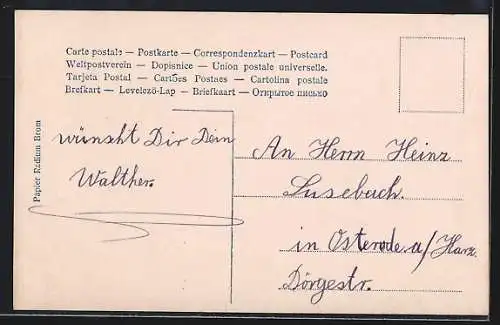 Carte postale — Postkarte — Correspondenzkart — Postcard
Weltpostverein — Dopisnice — Union postale universelle.
Tarjeta Postal — Cartões Postaes — Cartolina postale
Brefkart — Levelező-Lap — Briefkaart — Открытое письмо
Papier Radium Brom
wünsht Dir Dein
Walther.
An Herrn Heinz
Lusebach.
in Osterode a/Harz.
Dörgestr.